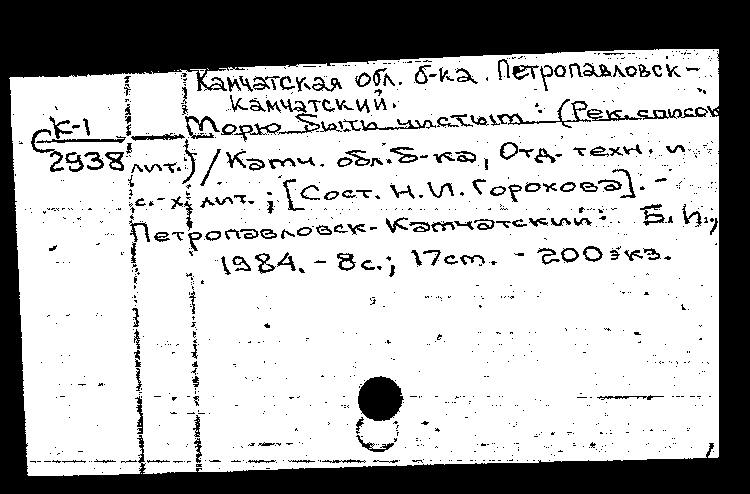 Камчатская обл. б-ка. Петропавловск-
Камчатский.
К-1
Морю быть чистым : (Рек. список
С
2938
лит.) / Камч. обл. б-ка, Отд. техн. и
с.-х. лит. ; [Сост. Н. И. Горохова]. -
Петропавловск-Камчатский : Б. и.,
1984. - 8 с. ; 17 см. - 200 экз.